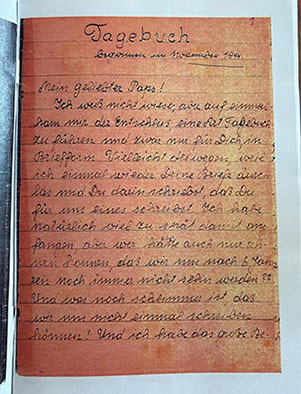 1
Tagebuch
Begonnen im November 1944.
Mein geliebter Paps!
Ich weiß nicht wieso, aber auf einmal
kam mir der Entschluß, eine Art Tagebuch
zu führen und zwar nur für Dich, in
Briefform. Vielleicht deswegen, weil
ich einmal wieder Deine Briefe durch
las und Du darin schriebst, daß Du
für uns eines schreibst. Ich habe
natürlich viel zu spät damit ange
fangen, aber wer hätte auch nur ah-
nen können, daß wir uns nach 6 Jah-
ren noch immer nicht sehn werden??
Und was noch schlimmer ist, das
wir uns nicht einmal schreiben
können! Und ich habe das große Be-